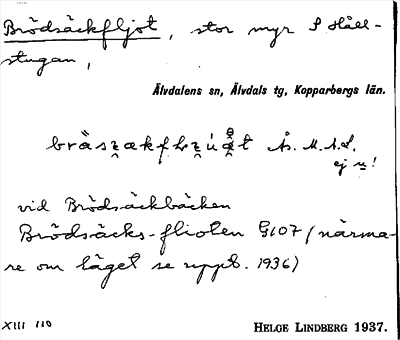 Brödsäckfljot, stor myr S Håll-
stugan,
Älvdalens sn, Älvdals tg, Kopparbergs län.
Ås. M.A.S.
ej u!
vid Brödsäckbäcken
Brödsäcks-flioten G107 (närma-
re om läget se uppt. 1936)
XIII 110 HELGE LINDBERG 1937.